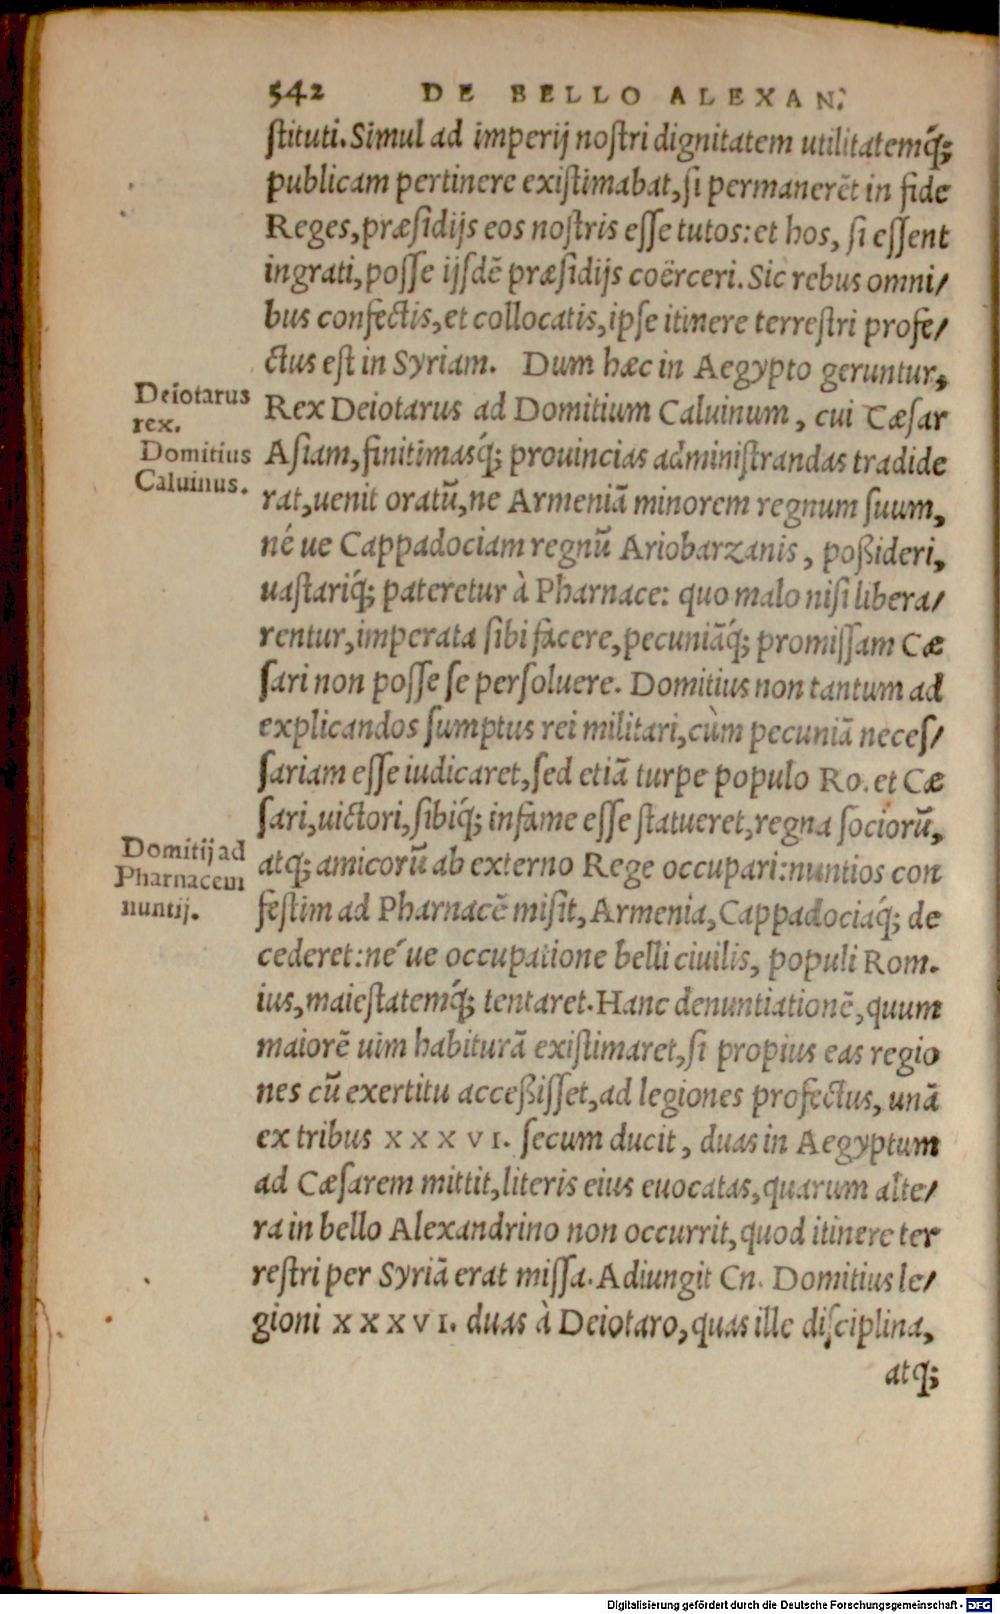 542 DE BELLO ALEXAN.
ſtituti. Simul ad imperij noſtri dignitatem utilitatemq́;
publicam pertinere exiſtimabat, ſi permanerẽt in fide
Reges, præſidijs eos noſtris eſſe tutos: et hos, ſi eſſent
ingrati, poſſe ijſdẽ præſidijs coërceri. Sic rebus omni/
bus confectis, et collocatis, ipſe itinere terreſtri profe/
ctus eſt in Syriam. Dum hæc in Aegypto geruntur,
Deiotarus
rex.
Rex Deiotarus ad Domitium Caluinum, cui Cæſar
Domitius
Caluinus.
Aſiam, finitimasq́; prouincias adminiſtrandas tradide
rat, uenit oratũ, ne Armeniã minorem regnum ſuum,
né ue Cappadociam regnũ Ariobarzanis, poßideri,
uaſtariq́; pateretur à Pharnace: quo malo niſi libera/
rentur, imperata ſibi facere, pecuniãq́; promiſſam Cæ
ſari non poſſe ſe perſoluere. Domitius non tantum ad
explicandos ſumptus rei militari, cùm pecuniã neceſ/
ſariam eſſe iudicaret, ſed etiã turpe populo Ro. et Cæ
ſari, uictori, ſibiq́; infame eſſe ſtatueret, regna ſociorũ,
Domitij ad
Pharnacem
nuntij.
atq; amicorũ ab externo Rege occupari: nuntios con
feſtim ad Pharnacẽ miſit, Armenia, Cappadociaq́; de
cederet: né ue occupatione belli ciuilis, populi Rom.
ius, maieſtatemq́; tentaret. Hanc denuntiationẽ, quum
maiorẽ uim habiturã exiſtimaret, ſi propius eas regio
nes cũ exertitu acceßiſſet, ad legiones profectus, unã
ex tribus XXXVI. ſecum ducit, duas in Aegyptum
ad Cæſarem mittit, literis eius euocatas, quarum alte/
ra in bello Alexandrino non occurrit, quod itinere ter
reſtri per Syriã erat miſſa. Adiungit Cn. Domitius le/
gioni XXXVI. duas à Deiotaro, quas ille diſciplina,
atq;
Digitalisierung gefördert durch die Deutsche Forschungsgemeinschaft - DFG